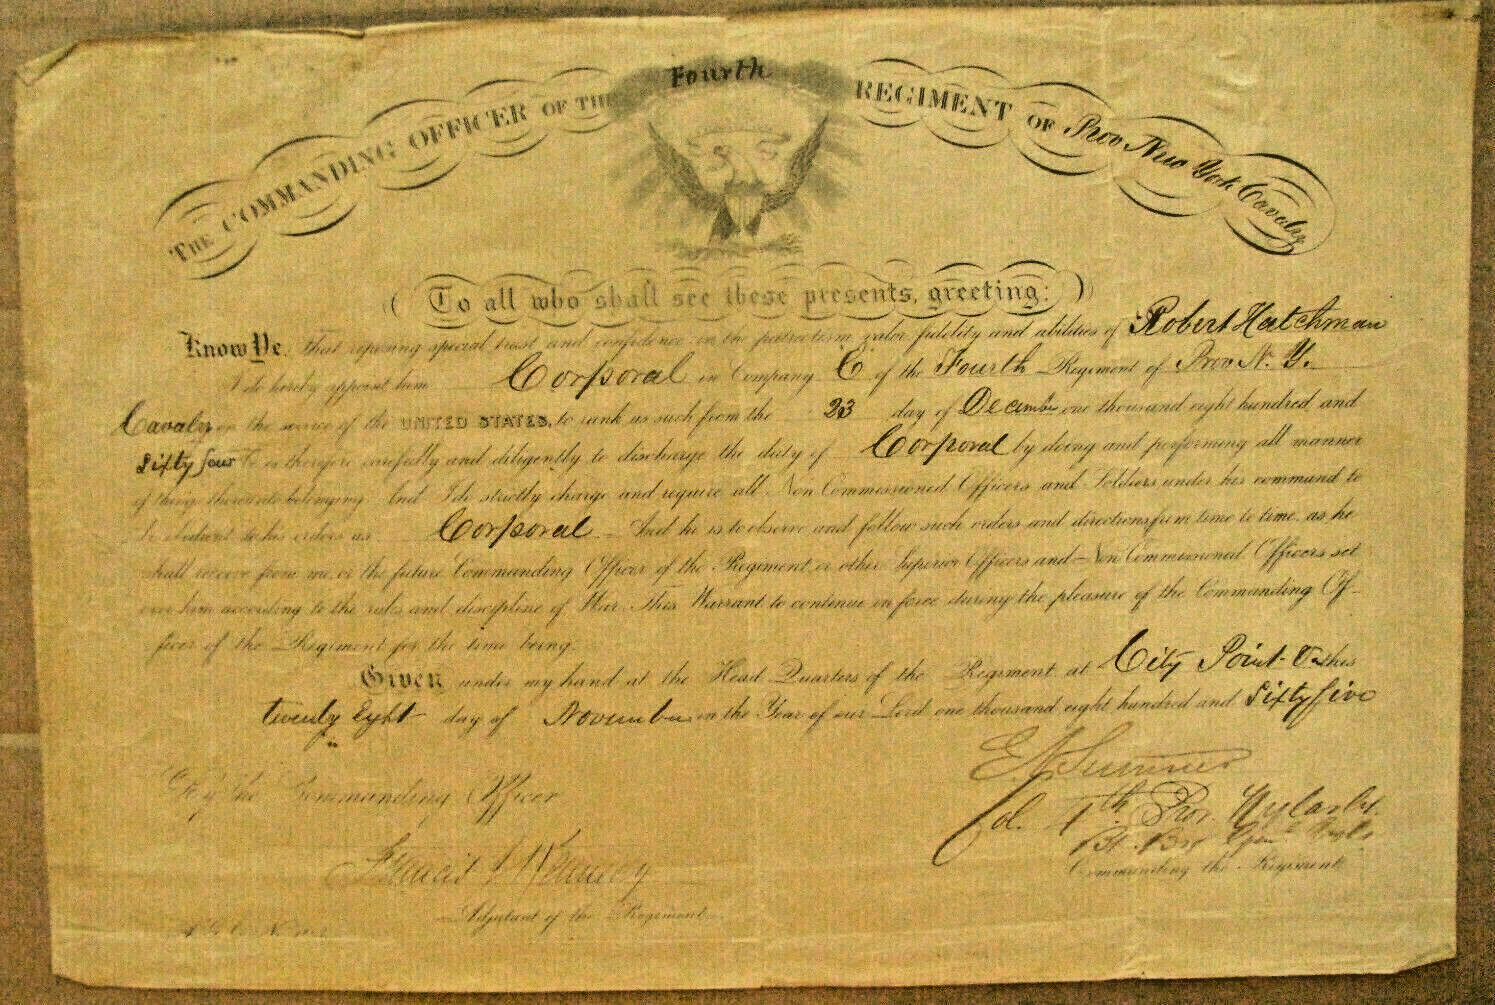 THE COMMANDING OFFICER OF THE Fourth REGIMENT OF Prov New York Cavalry
To all who shall see these presents, greeting:
Know Ye, That reposing special trust and confidence in the patriotism valor fidelity and abilities of Robert Hutchman
I do hereby appoint him Corporal in Company "C" of the Fourth Regiment of Prov N. Y.
Cavalry in the service of the UNITED STATES, to rank as such from the 23 day of December one thousand eight hundred and
Sixty four He is therefore carefully and diligently to discharge the duty of Corporal by doing and performing all manner
of things thereunto belonging. And I do strictly charge and require all Non Commissioned Officers and Soldiers under his command to
be obedient to his orders as Corporal And he is to observe and follow such orders and directions from time to time, as he
shall receive from me, or the future Commanding Officer of the Regiment, or other Superior Officers and Non Commissioned Officers set
over him according to the rules and discipline of War. This Warrant to continue in force during the pleasure of the Commanding Of-
ficer of the Regiment for the time being.
Given under my hand at the Head Quarters of the Regiment at City Point Va this
twenty Eight day of November in the Year of our Lord one thousand eight hundred and Sixty five
E V Sumner
By the Commanding Officer
Col. 1th Prov. N Y Cavly.
Bt. Brig Genl Vols
Commanding the Regiment
Francis
Adjutant of the Regiment